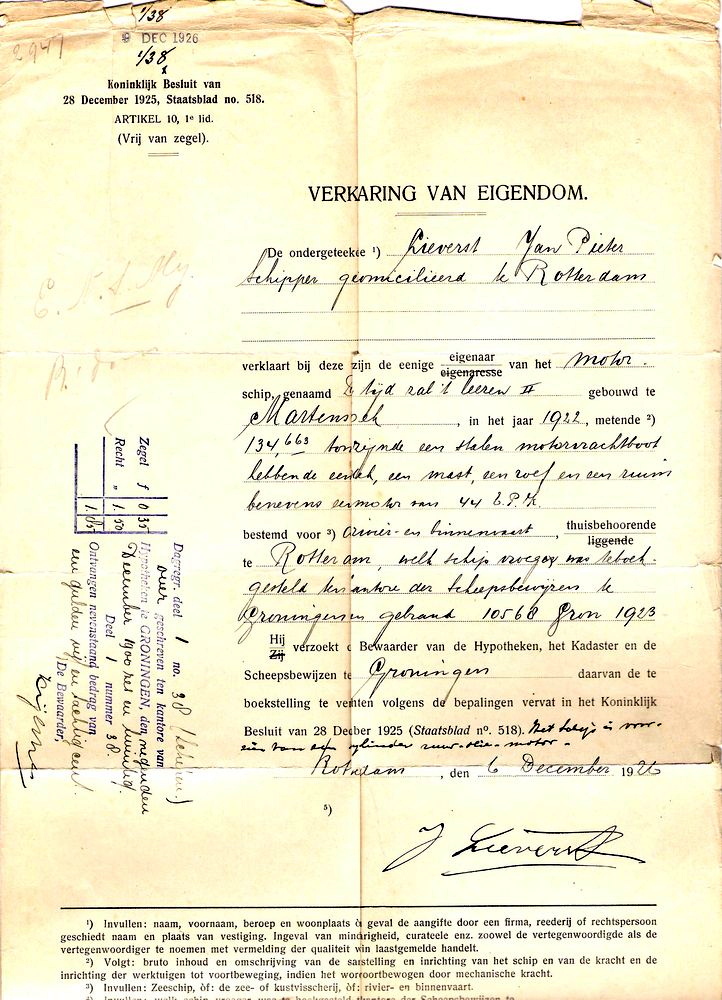 1/38
9 DEC 1926
1/38
2947
Koninklijk Besluit van
28 December 1925, Staatsblad no. 518.
ARTIKEL 10, 1e lid.
(Vrij van zegel).
VERKARING VAN EIGENDOM.
De ondergeteekte 1) Lieverst Jan Pieter
Schipper te Rotterdam
verklaart bij deze zijn de eenige eigenaar eigenaresse van het motor
schip, genaamd tijd zal 't leeren II gebouwd te
, in het jaar 1922, metende 2)
134,663 een stalen motorvrachtboot
hebbende een mast, een roef en een ruim
benevens motor van 44 E.P.K.
bestemd voor 3) rivier- en binnenvaart, thuisbehoorende liggende
te welk schip vroeger was teboek-
gesteld ten kantore der Scheepsbewijzen te
gebrand 10568 Gron 1923
Hij Zij verzoekt Bewaarder van de Hypotheken, het Kadaster en de
Scheepsbewijzen te Groningen daarvan de te
boekstelling te verhten volgens de bepalingen vervat in het Koninklijk
Besluit van 28 Decber 1925 (Staatsblad no. 518). Het schip is voor-
zien van een cylinder motor.
, den 6 December 1926
5)
J Lieverst
Zegel f 0 35
Recht " 1 50
1.85
Dagregr. deel 1 no. 38
over geschreven ten kantore van
Hypotheken te GRONINGEN, den negenden
December 1900 zes en twintig.
Deel 1 nummer 38.
Ontvangen nevenstaand bedrag van
een gulden vijf en tachtig cent.
De Bewaarder,
1) Invullen: naam, voornaam, beroep en woonplaats geval de aangifte door een firma, reederij of rechtspersoon
geschiedt naam en plaats van vestiging. Ingeval van mindrigheid, curateele enz. zoowel de vertegenwoordigde als de
vertegenwoordiger te noemen met vermelding der qualiteit win laastgemelde handelt.
2) Volgt: bruto inhoud en omschrijving van de sastelling en inrichting van het schip en van de kracht en de
inrichting der werktuigen tot voortbeweging, indien het worroortbewogen door mechanische kracht.
3) Invullen: Zeeschip, òf: de zee- of kustvisscherij, òf: rivier- en binnenvaart.